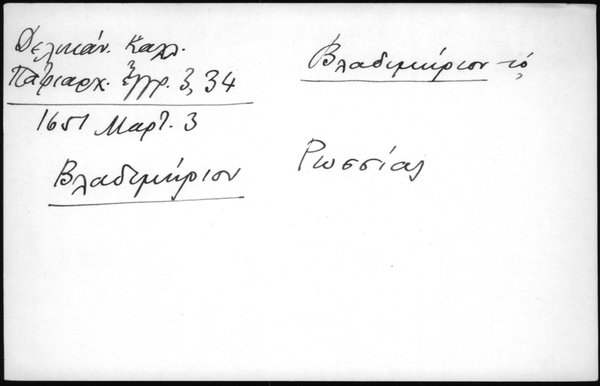 Δελικάν. Καλλ.
Πατριαρχ. ἔγγρ. 3, 34
1651 Μαρτ. 3
Βλαδιμήριον
Βλαδιμήριον τό
Ρωσσίας